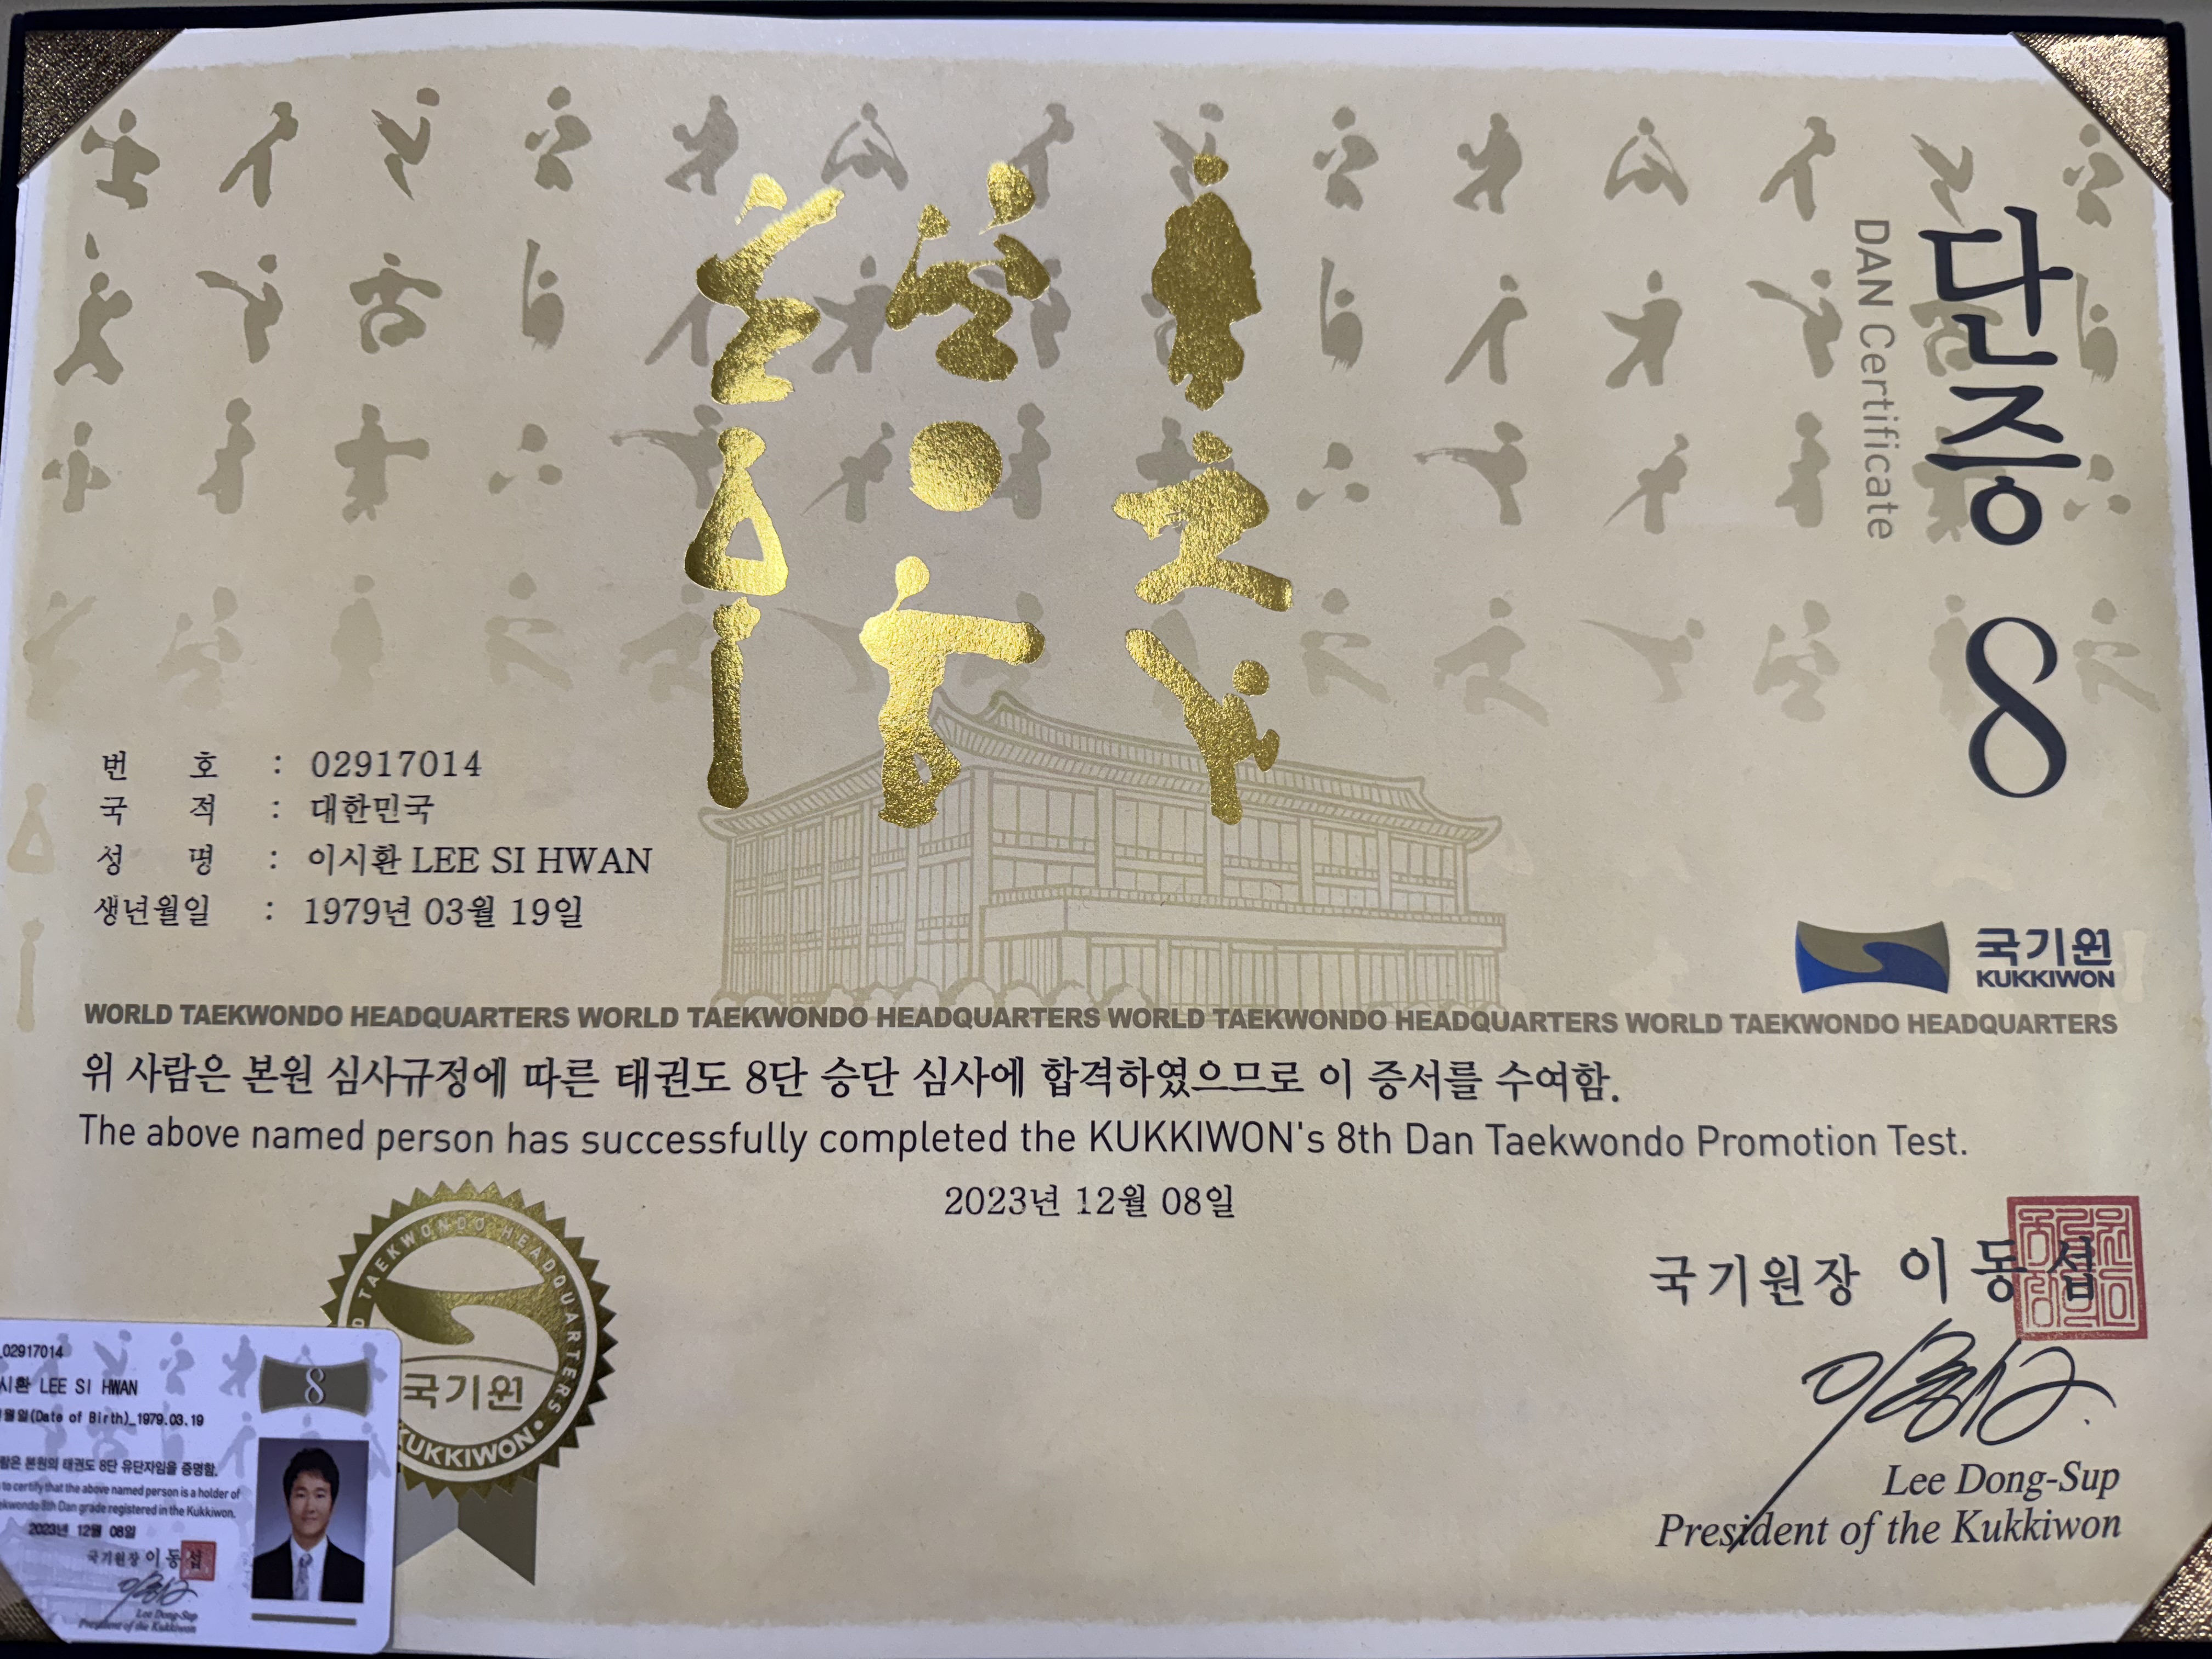 단증 8
DAN Certificate
번 호 : 02917014
국 적 : 대한민국
성 명 : 이시환 LEE SI HWAN
생년월일 : 1979년 03월 19일
국기원
KUKKIWON
WORLD TAEKWONDO HEADQUARTERS WORLD TAEKWONDO HEADQUARTERS WORLD TAEKWONDO HEADQUARTERS WORLD TAEKWONDO HEADQUARTERS
위 사람은 본원 심사규정에 따른 태권도 8단 승단 심사에 합격하였으므로 이 증서를 수여함.
The above named person has successfully completed the KUKKIWON's 8th Dan Taekwondo Promotion Test.
2023년 12월 08일
국기원장 이동섭
Lee Dong-Sup
President of the Kukkiwon
TAEKWONDO HEADQUARTERS
국기원
KUKKIWON
02917014
시환 LEE SI HWAN
월일(Date of Birth)_1979.03.19
8
람은 본원의 태권도 8단 유단자임을 증명함.
to certify that the above named person is a holder of
8th Dan grade registered in the Kukkiwon.
2023년 12월 08일
국기원장 이동섭
Lee Dong-Sup
President of the Kukkiwon